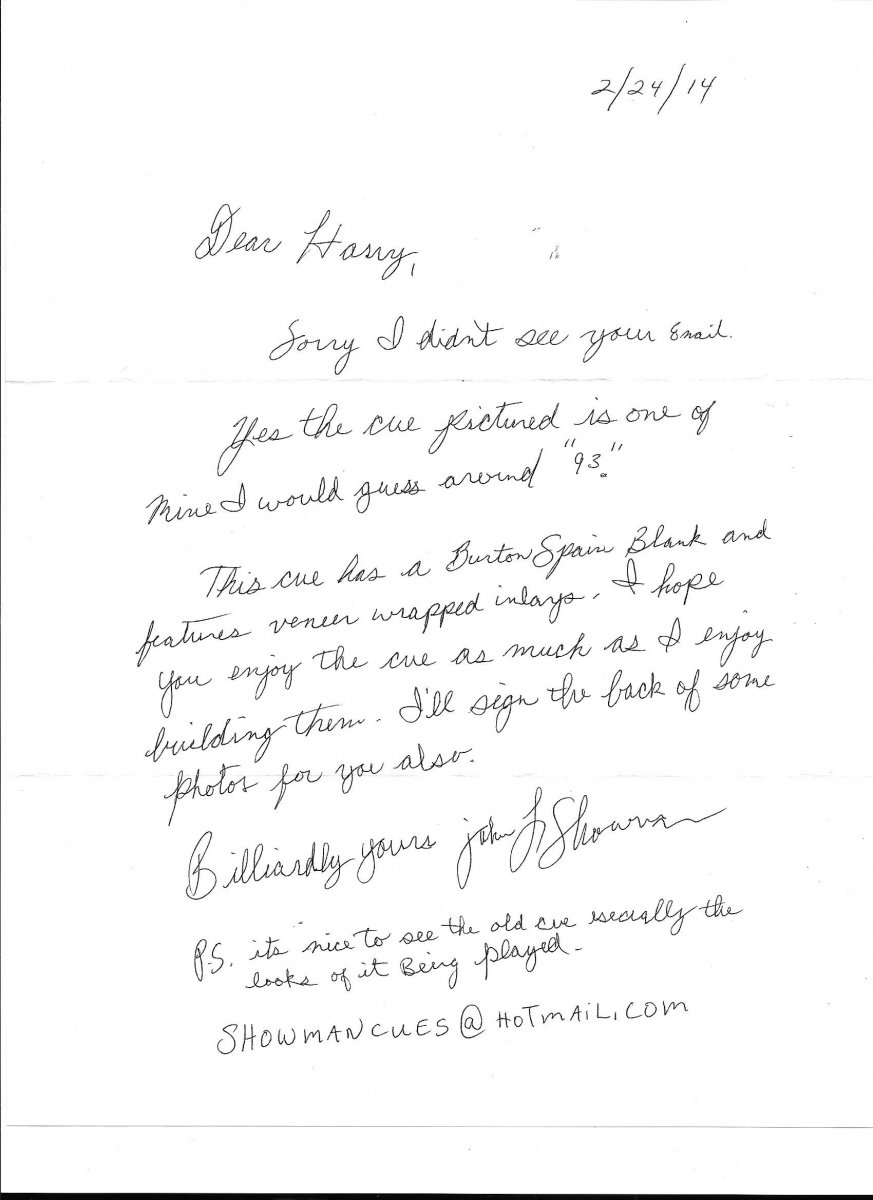 2/24/14
Dear Harry,
Sorry I didn't see your Email.
Yes the cue pictured is one of
Mine I would guess around "93."
This cue has a Burton Spain Blank and
features veneer wrapped inlays. I hope
you enjoy the cue as much as I enjoy
building them. I'll sign the back of some
photos for you also.
Billiardly yours john F Showman
P.S. its nice to see the old cue esecially the
looks of it Being played.
SHOWMANCUES@HOTMAIL.COM